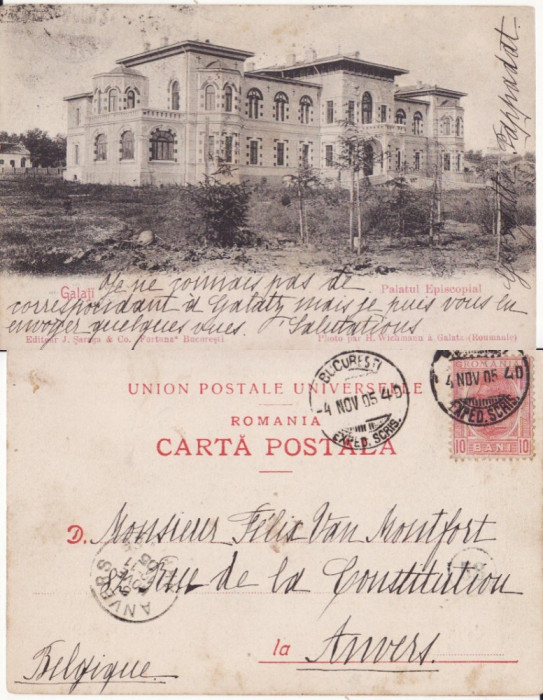 Galaţi
Palatul Episcopial
Je ne connais pas de
correspondant à Galatz mais je puis vous en
envoyer quelques vues. Salutations
Editeur J. Şaraga & Co. "Fortuna" Bucoreşti
Photo par H. Wichmann à Galatz (Roumanie)
UNION POSTALE UNIVERSELLE
ROMANIA
CARTĂ POSTALĂ
BUCUREŞTI
-4 NOV 05 4.D
EXPED. SCRIS.
4 NOV 05 4.D
EXPED. SCRIS.
ROMANIA
10 BANI 10
D. Monsieur Félix Van Montfort
Rue de la Constitution
la Anvers.
Belgique.
ANVERS